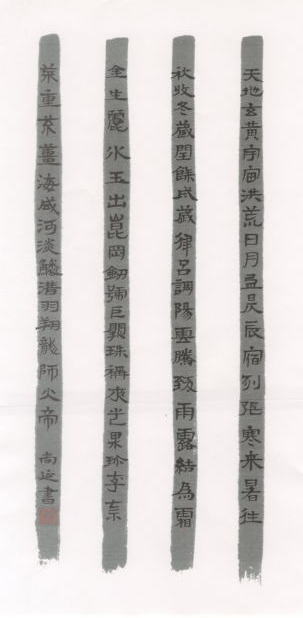 天地玄黃宇宙洪荒日月盈昃辰宿列張寒来暑往
秋收冬蔵閏餘成歲律呂調陽雲騰致雨露結為霜
金生麗水玉出崑岡劒號巨闕珠稱夜光果珍李柰
菜重芥薑海咸河淡鱗潛羽翔龍師火帝
尚延書